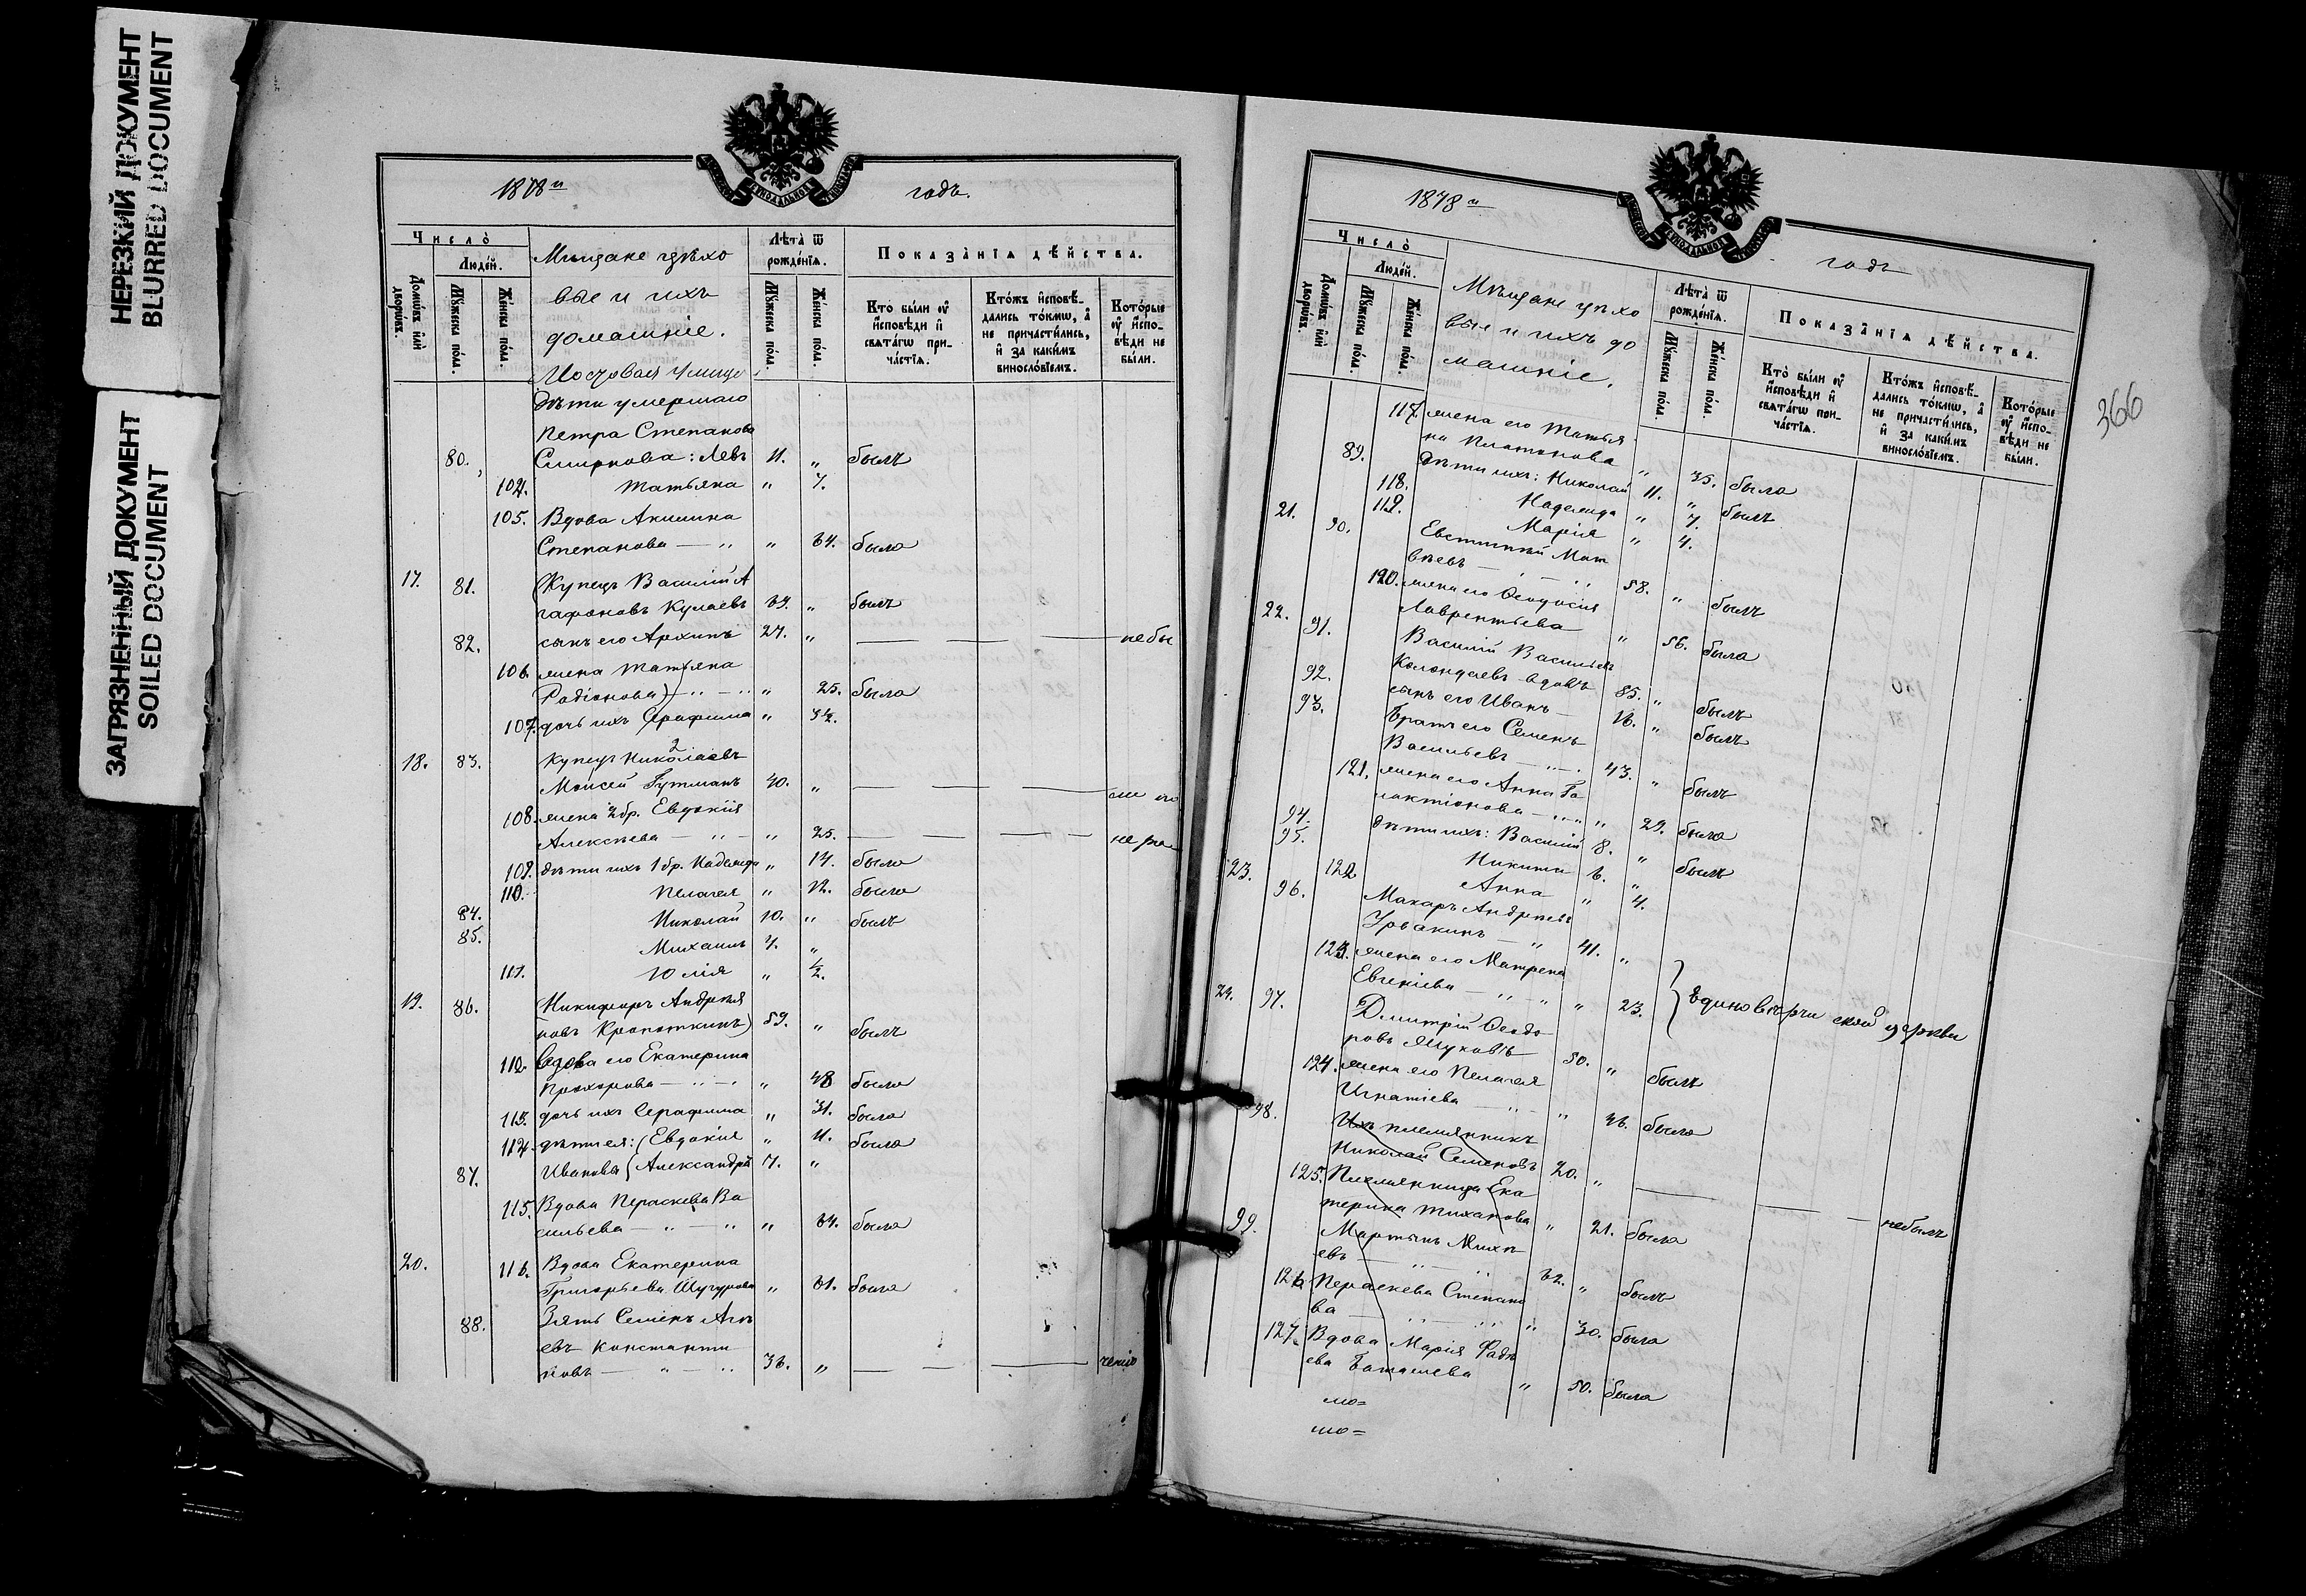 НЕРЕЗКИЙ ДОКУМЕНТ
BLURRED DOCUMENT
ЗАГРЯЗНЕННЫЙ ДОКУМЕНТ
SOILED DOCUMENT
1878 и годъ.
Число̀
Людéй.
Домѡ́въ и҆лѝ дворѡ́въ.
Мꙋ́жеска пóла.
Же́нска пóла.
Мѣщане цѣхо
вые и ихъ
домашніе.
Лѣ́та ѿ рожде́нїѧ.
Мꙋ́жеска пóла.
Же́нска пóла.
Показа̑нїѧ дѣ́йства.
Кто̀ бы́ли ᲂу҆ и҆сповѣ́ди и҆ свѧта́гѡ при-ча́стїѧ.
Кто́жъ и҆сповѣ́-дались то́кмѡ, а҆ не причасти́лись, и҆ за каки́мъ винослóвїемъ.
Кото́рые ᲂу҆ и҆спо-вѣ́ди не бы́ли.
Дѣти умершаго
Петра Степанова
80. Смирнова: Левъ 11. „ былъ
104. Татьяна „ 7.
105. Вдова Акилина
Степанова — „ „ 64. была
17. 81. Купецъ Василій А
гафоновъ Кулаевъ 69. „ былъ
82. сынъ его Архипъ 27. „ — — — не бы
106. жена Татьяна
Родіонова) — „ — „ „ 25. была
107. дочь ихъ Серафима „ 3½.
18. 83. Купецъ 2 Николаевъ
Моисей Гутманъ 40. „ — — —
108. жена 2 бр. Евдокія
Алексѣева — „ — „ 25. — — —
109. дѣти ихъ 1 бр. Надежда „ 14. была
110. Пелагея „ 12. была
84. Николай 10. „ былъ
85. Михаилъ 7. „
111. Юлія „ ½.
19. 86. Никифоръ Андрея
новъ Кропоткинъ) 59. „ былъ
112. Вдова его Екатерина
Прохорова — „ — „ „ 48 была
113. дочь ихъ Серафима „ 31. была
114. дѣти ея: (Евдокія „ 11. была
87. Ивановы { Александръ 7. „
115. Вдова Параскева Ва
сильева — „ — „ „ 64. была
20. 116. Вдова Екатерина
Григорьева „ 61. была
88. Зять Семенъ
евъ Константи
новъ — „ „ 36. „ — — —
1878 и годъ
366
Число̀
Людéй.
Домѡ́въ и҆лѝ дворѡ́въ.
Мꙋ́жеска пóла.
Же́нска пóла.
Мѣщане цѣхо
вые и ихъ до
машніе.
Лѣ́та ѿ рожде́нїѧ.
Мꙋ́жеска пóла.
Же́нска пóла.
Показа̑нїѧ дѣ́йства.
Кто̀ бы́ли ᲂу҆ и҆сповѣ́ди и҆ свѧта́гѡ при-ча́стїѧ.
Кто́жъ и҆сповѣ́-дались то́кмѡ, а҆ не причасти́лись, и҆ за каки́мъ винослóвїемъ.
Кото́рые ᲂу҆ и҆спо-вѣ́ди не бы́ли.
117. жена его Татья
на Платонова „ 35. была
89. Дѣти ихъ: Николай 11. „ былъ
118. Надежда „ 7.
119. Марія „ 4.
21. 90. Евстигней Мат
вѣевъ — „ — „ 58. „ былъ
120. жена его Ѳеодосія
Лаврентьева „ 56. была
22. 91. Василій Васильевъ
вдовъ 85. „ былъ
92. сынъ его Иванъ — 16. „ былъ
93. Братъ его Семенъ
Васильевъ — „ — 43. „ былъ
121. жена его Анна Га
лактіонова — „ „ „ 29. была
94. дѣти ихъ: Василій 8. „ былъ
95. Никита 6. „
122 Анна „ 4.
23. 96. Макаръ Андреевъ
Урвакинъ — „ 41. „
123. жена его Матрена
Евгеніева — „ — „ „ 23. } Единовѣрческой церкви
24. 97. Димитрій Ѳеодо
ровъ Жуковъ 50. „ былъ
124. жена его Пелагея
Игнатіева — „ — „ 46. была
98. Ихъ племянникъ
Николай Семеновъ 20. „ — — — небылъ
125. Племянница Ека
терина Тиханова „ 21. была
99. Мартынъ
евъ — „ „ 62. „ былъ
126 Параскева Степано
ва — „ — „ „ 30. была
127. Вдова Марія Фадѣ
ева „ 50. была